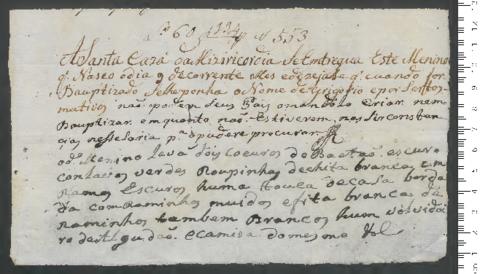 Lº 60 1334 p nº 553
A Santa Caza da Mizericordia Se Entregua Este Menino
q. Naseo ó dia 9 de corrente mes e dezejase q. cuando for
Bauptizado Se lhe ponha o Nome de Grigorio e por Sertos
motivos não podem Seus Pais mandalo Criar nem
Bauptizar em quanto não Estiverem nas Sirconstan
cias nesesaria pª o poderem procurar
Oº Menino leva dois Coeiros de Baetão escuro
com lacios verdes Roupinhas de chita branca com
Ramos Escuros huma touca de Casa borda
da com Raminhos miudos e fita branca de
Raminhos tambem Brancos hum
ro de algudão e camisa do mesmo